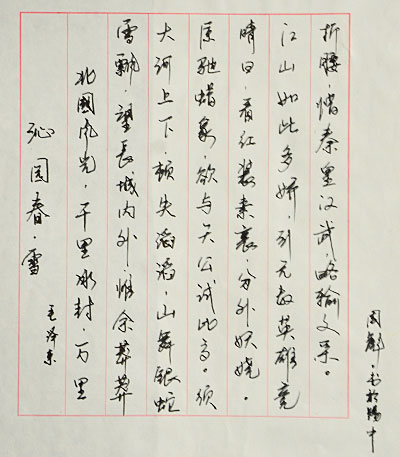 沁园春·雪
毛泽东
北國风光，千里冰封，万里
雪飘，望長城内外，惟余莽莽
大河上下，顿失滔滔，山舞银蛇
原驰蜡象，欲与天公试比高。须
晴日，看红装素裹，分外妖娆。
江山如此多娇，引无数英雄竞
折腰，惜秦皇汉武，略输文采。
书於 中